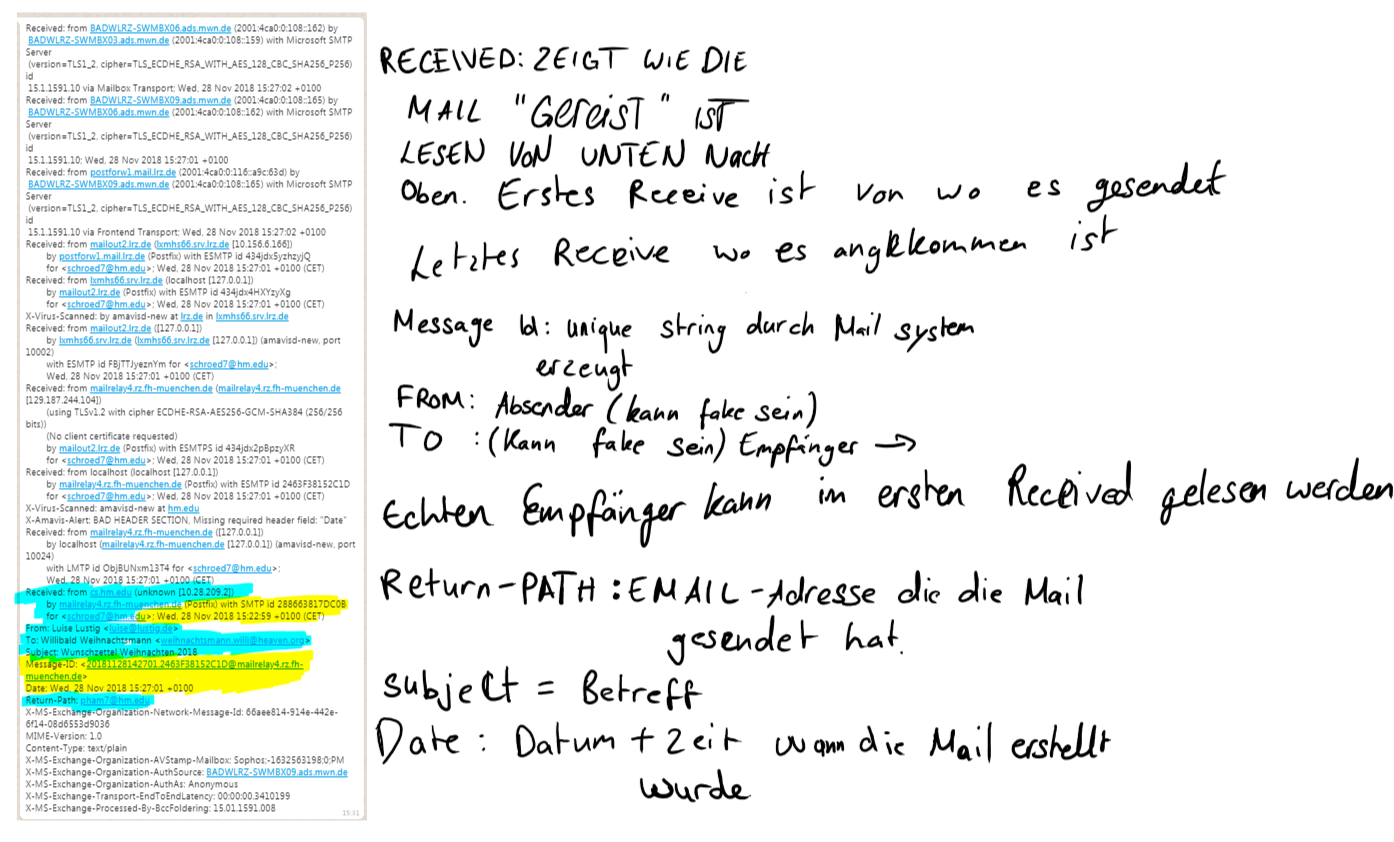 Received: from BADWLRZ-SWMBX06.ads.mwn.de (2001:4ca0:0:108::162) by
BADWLRZ-SWMBX03.ads.mwn.de (2001:4ca0:0:108::159) with Microsoft SMTP
Server
(version=TLS1_2, cipher=TLS_ECDHE_RSA_WITH_AES_128_CBC_SHA256_P256)
id
15.1.1591.10 via Mailbox Transport; Wed, 28 Nov 2018 15:27:02 +0100
Received: from BADWLRZ-SWMBX09.ads.mwn.de (2001:4ca0:0:108::165) by
BADWLRZ-SWMBX06.ads.mwn.de (2001:4ca0:0:108::162) with Microsoft SMTP
Server
(version=TLS1_2, cipher=TLS_ECDHE_RSA_WITH_AES_128_CBC_SHA256_P256)
id
15.1.1591.10; Wed, 28 Nov 2018 15:27:01 +0100
Received: from postforw1.mail.lrz.de (2001:4ca0:0:116::a9c:63d) by
BADWLRZ-SWMBX09.ads.mwn.de (2001:4ca0:0:108::165) with Microsoft SMTP
Server
(version=TLS1_2, cipher=TLS_ECDHE_RSA_WITH_AES_128_CBC_SHA256_P256)
id
15.1.1591.10 via Frontend Transport; Wed, 28 Nov 2018 15:27:02 +0100
Received: from mailout2.lrz.de (lxmhs66.srv.lrz.de [10.156.6.166])
by postforw1.mail.lrz.de (Postfix) with ESMTP id 434jdx5yzhzyjQ
for <schroed7@hm.edu>; Wed, 28 Nov 2018 15:27:01 +0100 (CET)
Received: from lxmhs66.srv.lrz.de (localhost [127.0.0.1])
by mailout2.lrz.de (Postfix) with ESMTP id 434jdx4HXYzyXg
for <schroed7@hm.edu>; Wed, 28 Nov 2018 15:27:01 +0100 (CET)
X-Virus-Scanned: by amavisd-new at lrz.de in lxmhs66.srv.lrz.de
Received: from mailout2.lrz.de ([127.0.0.1])
by lxmhs66.srv.lrz.de (lxmhs66.srv.lrz.de [127.0.0.1]) (amavisd-new, port
10002)
with ESMTP id FBjTTJyeznYm for <schroed7@hm.edu>;
Wed, 28 Nov 2018 15:27:01 +0100 (CET)
Received: from mailrelay4.rz.fh-muenchen.de (mailrelay4.rz.fh-muenchen.de
[129.187.244.104])
(using TLSv1.2 with cipher ECDHE-RSA-AES256-GCM-SHA384 (256/256
bits))
(No client certificate requested)
by mailout2.lrz.de (Postfix) with ESMTPS id 434jdx2pBpzyXR
for <schroed7@hm.edu>; Wed, 28 Nov 2018 15:27:01 +0100 (CET)
Received: from localhost (localhost [127.0.0.1])
by mailrelay4.rz.fh-muenchen.de (Postfix) with ESMTP id 2463F38152C1D
for <schroed7@hm.edu>; Wed, 28 Nov 2018 15:27:01 +0100 (CET)
X-Virus-Scanned: amavisd-new at hm.edu
X-Amavis-Alert: BAD HEADER SECTION, Missing required header field: "Date"
Received: from mailrelay4.rz.fh-muenchen.de ([127.0.0.1])
by localhost (mailrelay4.rz.fh-muenchen.de [127.0.0.1]) (amavisd-new, port
10024)
with LMTP id ObjBUNxm13T4 for <schroed7@hm.edu>;
Wed, 28 Nov 2018 15:27:01 +0100 (CET)
Received: from cs.hm.edu (unknown [10.28.209.2])
by mailrelay4.rz.fh-muenchen.de (Postfix) with SMTP id 288663817DC0B
for <schroed7@hm.edu>; Wed, 28 Nov 2018 15:22:59 +0100 (CET)
From: Luise Lustig <luise@lustig.de>
To: Willibald Weihnachtsmann <weihnachtsmann.willi@heaven.org>
Subject: Wunschzettel Weihnachten 2018
Message-ID: <20181128142701.2463F38152C1D@mailrelay4.rz.fh-
muenchen.de>
Date: Wed, 28 Nov 2018 15:27:01 +0100
Return-Path: pham7@hm.edu
X-MS-Exchange-Organization-Network-Message-Id: 66aee814-914e-442e-
6f14-08d6553d9036
MIME-Version: 1.0
Content-Type: text/plain
X-MS-Exchange-Organization-AVStamp-Mailbox: Sophos;-1632563198;0;PM
X-MS-Exchange-Organization-AuthSource: BADWLRZ-SWMBX09.ads.mwn.de
X-MS-Exchange-Organization-AuthAs: Anonymous
X-MS-Exchange-Transport-EndToEndLatency: 00:00:00.3410199
X-MS-Exchange-Processed-By-BccFoldering: 15.01.1591.008
15:31
RECEIVED: ZEIGT WIE DIE
MAIL "Gereist" IST
LESEN VON UNTEN Nach
Oben. Erstes Receive ist von wo es gesendet
Letztes Receive wo es angekkommen ist
Message Id: unique string durch Mail system
erzeugt
FROM: Absender (kann fake sein)
TO : (Kann fake sein) Empfänger →
Echten Empfänger kann im ersten Received gelesen werden
Return-PATH : EMAIL-Adresse die die Mail
gesendet hat.
Subject = Betreff
Date : Datum + Zeit wann die Mail erstellt
wurde